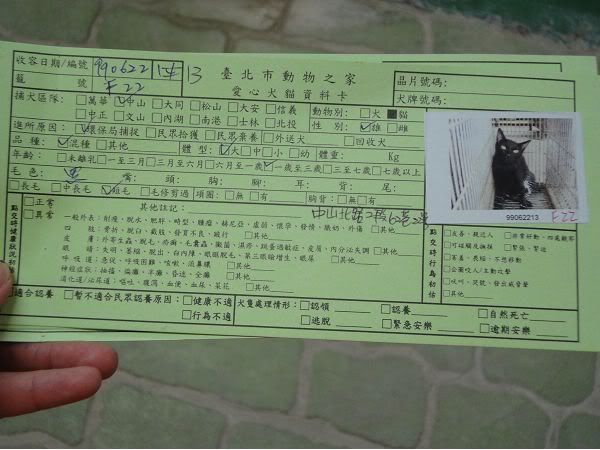 收容日期/編號 990622/154 13 臺北市動物之家 晶片號碼:
籠 號 F22 愛心犬貓資料卡 犬牌號碼:
捕犬區隊: □萬華 ☑中山 □大同 □松山 □大安 □信義 動物別: □犬 ■貓
□中正 □文山 □內湖 □南港 □士林 □北投 性 別: ☑雄 □雌
進所原因: ☑環保局捕捉 □民眾拾獲 □民眾棄養 □外送犬 □回收犬
品 種: ☑混種 □其他 體 型: ☑大 □中 □小 □幼 體重: Kg
年齡: □未離乳 □一至三月 □三月至六月 □六月至一歲 ☑一歲至三歲 □三至七歲 □七歲以上
毛 色: 黑 嘴: 頭: 胸: 腳: 耳: 背: 尾:
□長毛 □中長毛 ☑短毛 □毛修剪過 項圈: □無 □有 胸背: □無 □有
99062213 F22
點交時健康狀況初估 □正常
□異常
其他註記: 中山北路2段
一般外表: 削瘦、脫水、肥胖、畸型、腫瘤、赫尼亞、虛弱、懷孕、發情、脹奶、外傷 □其他
四 肢: 骨折、脫臼、截肢、發育不良、跛行 □其他
皮 膚: 外寄生蟲、脫毛、疥癬、毛囊蟲、黴菌、濕疹、跳蚤過敏症、皮屑、內分泌失調 □其他
眼 睛: 失明、萎縮、脫出、白內障、眼瞼脫毛、第三眼瞼增生、眼屎 □其他
呼 吸 道: 急促、呼吸困難、咳嗽、流鼻膿 □其他
神經症狀: 抽搐、偏癱、半癱、昏迷、全癱 □其他
消化道/泌尿道: 嘔吐、腹瀉、血便、血尿、呆花 □其他
點交時行為初估
□友善、親近人 □非常好動、四處觀察
□可明顯見撫摸 □緊張、緊迫
□害羞、畏縮、不想移動
□企圖咬人/主動攻擊
□吠叫、哭號、發出威脅聲
□其他
□適合認養 □暫不適合民眾認養原因: □健康不適 犬隻處理情形: □認領 □認養 □自然死亡
□行為不適 □逃脫 □緊急安樂 □逾期安樂